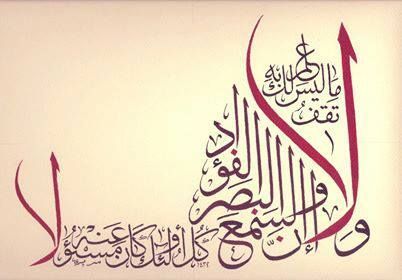 ولا تقف ما ليس لك به علم
إن السمع والبصر والفؤاد
كل أولئك كان عنه مسؤولا
١٤٣٢